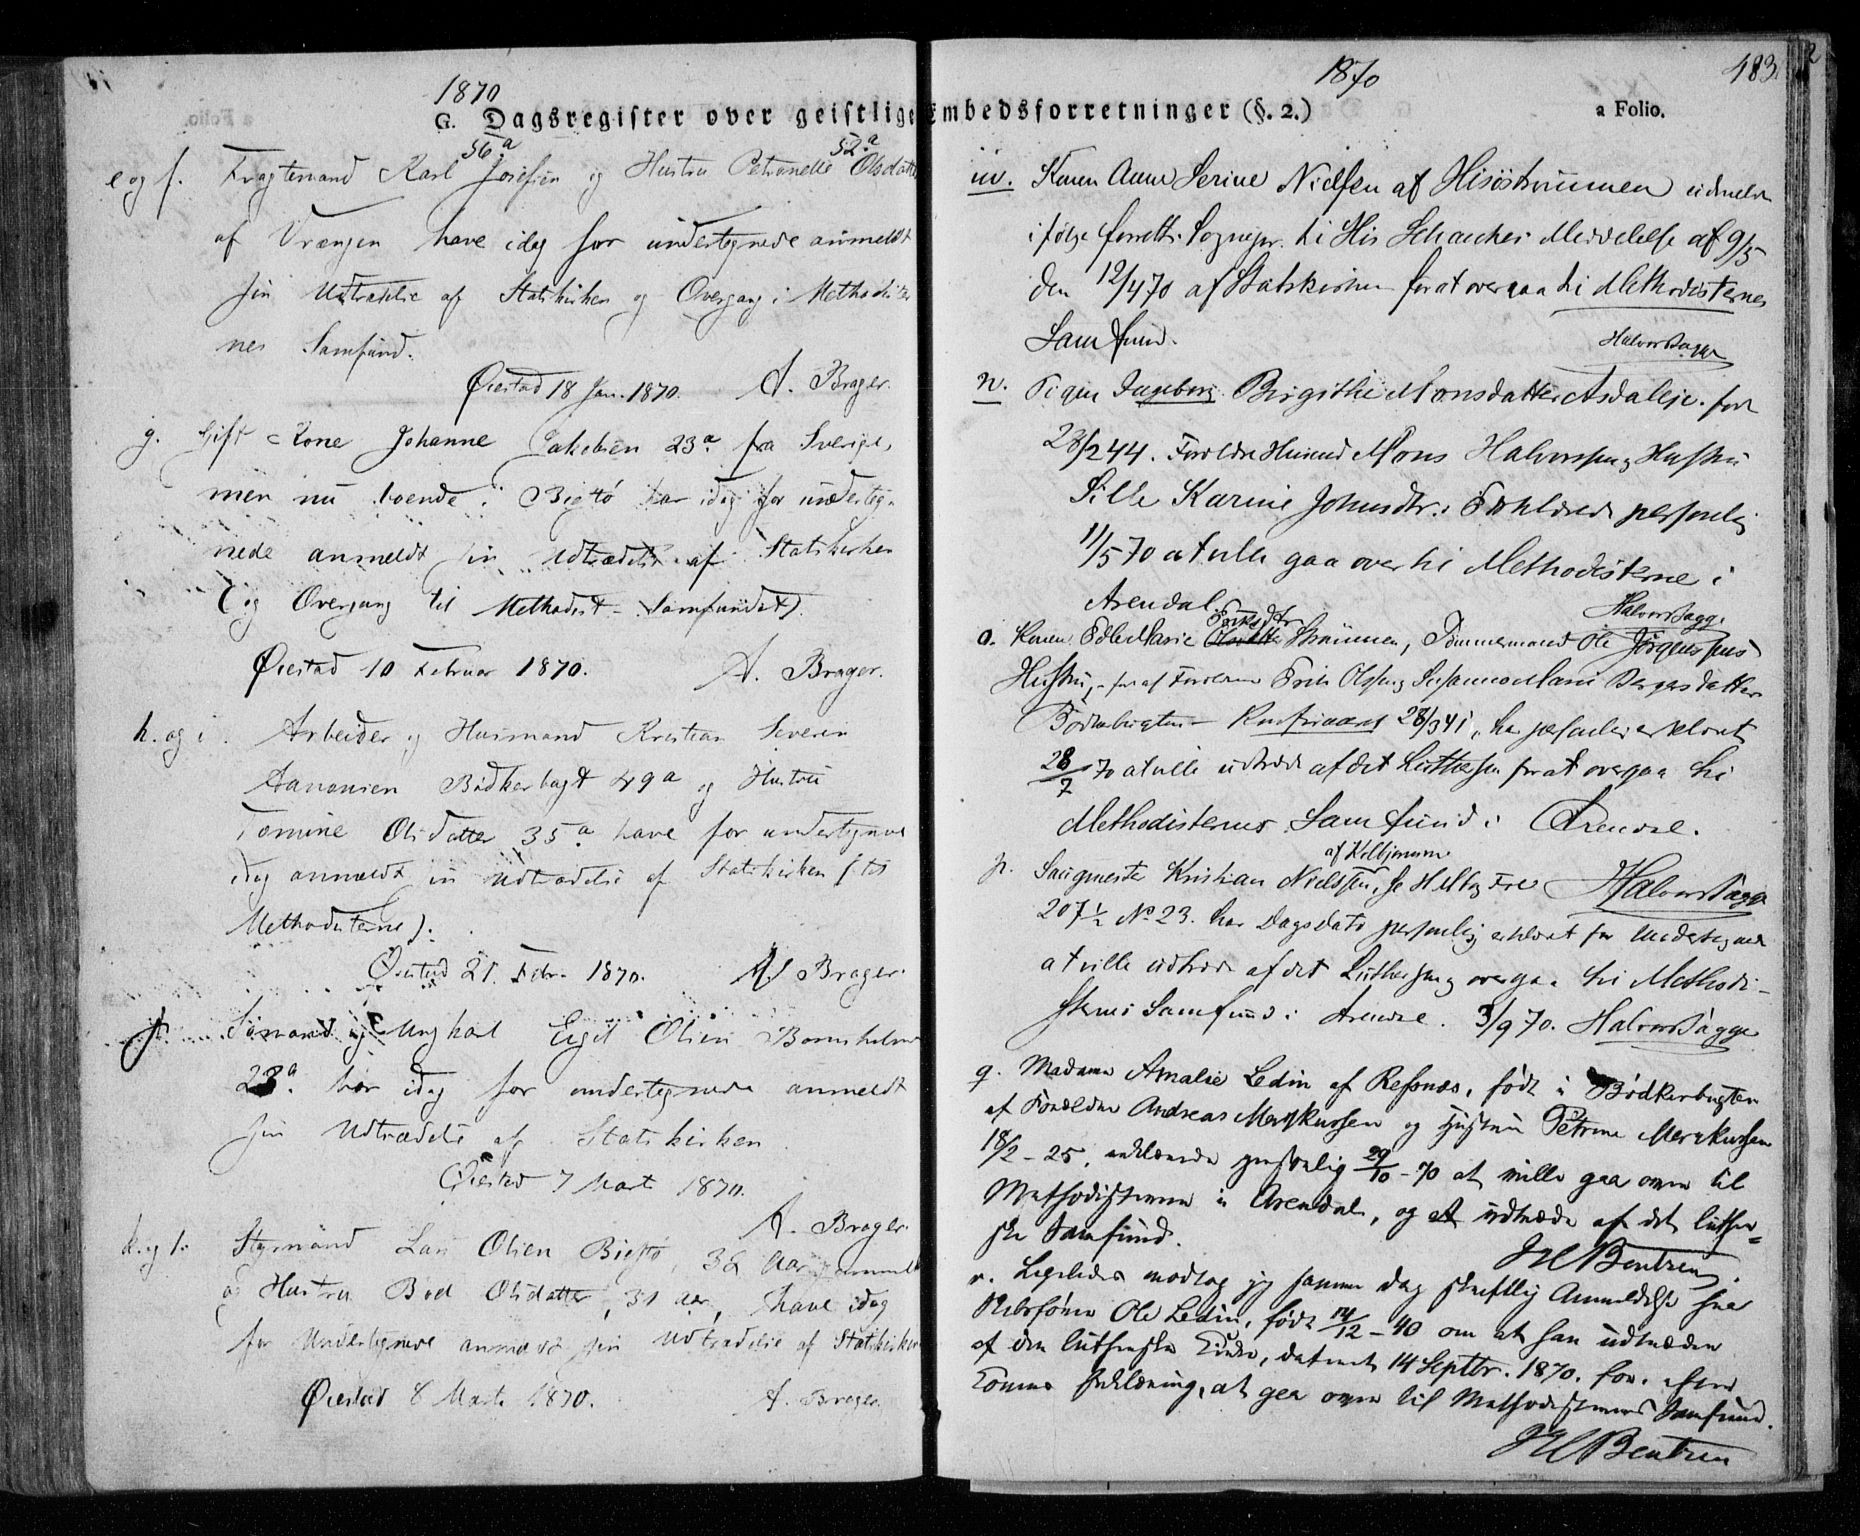 1870
G. Dagsregister over geistlige Embedsforretninger (§. 2.)
56 a 52 a
e og f. Fragtemand Karl Josefsen og Hustru Petronelle Olsdatter
af Vrængen have idag for undertegnede anmeldt
sin Udtrædelse af Statskirken og Overgang i Methodister
nes Samfund.
Øiestad 18 Jan. 1870. A. Brager.
g. Gift Kone Johanne Jakobsen 23 a fra Sverige,
men nu boende i Biesø har idag for underteg-
nede anmeldt sin Udtrædelse af Statskirken
(og Overgang til Methodist-Samfundet).
Øiestad 10 Februar 1870. A. Brager.
h. og i. Arbeider og Huusmand Kristian Severin
Aanonsen Bødkerbugt 49 a og Hustru
Tomine Olsdatter 35 a. have for undertegnede
idag anmeldt sin Udtrædelse af Statskirken (til
Methodisterne).
Øiestad 21. Febr. 1870. A. Brager.
Sømand og Ungkarl Egil Olsen Bornsholmen
23 a. har idag for undertegnede anmeldt
sin Udtrædelse af Statskirken
Øiestad 7 Marts 1870.
A. Brager.
k. og l. Styrmand Lars Olsen Biesø, 38 Aar gammel
og Hustru Olsdatter, 31 Aar, have idag
for Undertegnede anmeldt sin Udtrædelse af Statskirken
Øiestad 8 Marts 1870. A. Brager.
1870 483.
a Folio.
m. Karen Anne Serine Nielsen af Hisøstrømmen udmeldt
ifølge Sognepr. til His Meddelelse af 9/5
den 12/4 70 af Statskirken for at overgaa til Methodisternes
Samfund. Halvor Bagge
n. Pigen Ingeborg Birgithe Monsdatter Asdalseje. født
23/2 44. Forældre Huusmd Mons Halvorsen og Hustru
Sille Karine Johnsdtr. Erklærede personlig
11/5 70 at ville gaa over til Methodisterne i
Arendal. Halvor Bagge.
Eriksdtr
o. Konen Edle Marie Olsdatter Strømmen, Tømmermand Ole Jørgensens
Hustru, – før af Forældrene Erik Olsen og Susanne Marie Bergersdatter
Bødkerbugten – 28/3 41, har personlig erklæret
28/7 70 at ville udtræde af det Lutherske for at overgaa til
Methodisternes Samfund i Arendal.
af Kolbjørnsvn
p. Saugmester Kristian Nielsen, se Halvor Bagge
207 1/2 No 23. har Dagsdato personlig erklæret for undertegnede
at ville udtræde af det Lutherske og overgaa til Methodi-
sternes Samfund i Arendal. 3/9 70. Halvor Bagge
q. Madame Amalie Ledin af Resonæs, født i Bødkerbugten
af Forældre Andreas Merkussen og Hustru Petrine Merkussen
18/2 – 25, erklærede personlig 29/10 – 70 at ville gaa over til
Methodisterne i Arendal, og at udtræde af det luther-
ske Samfund.
JHC Bentzen.
r. Ligeledes modtog jeg samme Dag skriftlig Anmeldelse fra
Skibsfører Ole Ledin, født 14/12 – 40 om at han udtræder
af den lutherske Kirke, dateret 14 Septbr. 1870. for, efter
Konens Erklæring, at gaa over til Methodisternes Samfund.
JHC Bentzen